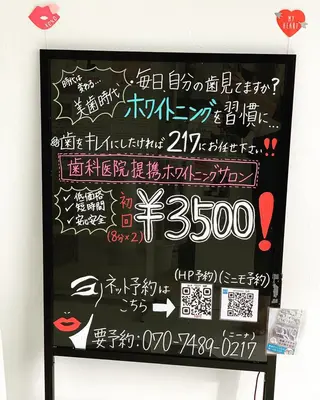 時代は変わる…
美歯時代
・毎日、自分の歯見てますか?
ホワイトニングを習慣に…
歯をキレイにしたければ217にお任せ下さい!!
歯科医院提携ホワイトニングサロン
✓低価格
✓短時間
✓安心安全
初回
(8分×2)
¥3500!
ネット予約は
こちら→
(HP予約)
(ミニモ予約)
(ニーナ)
要予約:070-7489-0217
MY
HEART